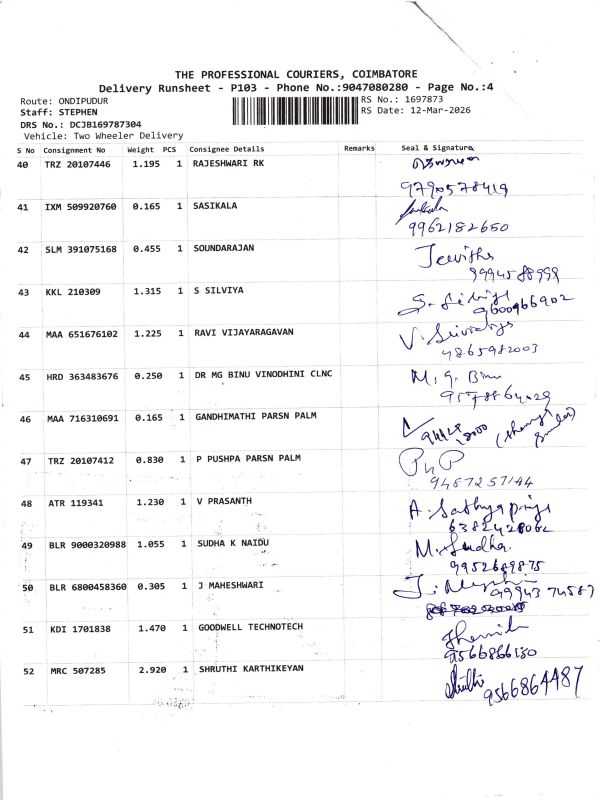 THE PROFESSIONAL COURIERS, COIMBATORE
Delivery Runsheet - P103 - Phone No.:9047080280 - Page No.:4
Route: ONDIPUDUR RS No.: 1697873
Staff: STEPHEN RS Date: 12-Mar-2026
DRS No.: DCJB169787304
Vehicle: Two Wheeler Delivery
S No Consignment No Weight PCS Consignee Details Remarks Seal & Signature
40 TRZ 20107446 1.195 1 RAJESHWARI RK
9790578419
41 IXM 509920760 0.165 1 SASIKALA
9962182650
42 SLM 391075168 0.455 1 SOUNDARAJAN Jeevitha
9994588999
43 KKL 210309 1.315 1 S SILVIYA
9600966902
44 MAA 651676102 1.225 1 RAVI VIJAYARAGAVAN
9865982003
45 HRD 363483676 0.250 1 DR MG BINU VINODHINI CLNC M. G. Binu
46 MAA 716310691 0.165 1 GANDHIMATHI PARSN PALM
47 TRZ 20107412 0.830 1 P PUSHPA PARSN PALM
9487257144
48 ATR 119341 1.230 1 V PRASANTH A. Sathyapriya
6382428062
49 BLR 9000320988 1.055 1 SUDHA K NAIDU M. Sudha.
9952689875
50 BLR 6800458360 0.305 1 J MAHESHWARI
9994374589
51 KDI 1701838 1.470 1 GOODWELL TECHNOTECH
9566866130
52 MRC 507285 2.920 1 SHRUTHI KARTHIKEYAN Shruthi
9566864487